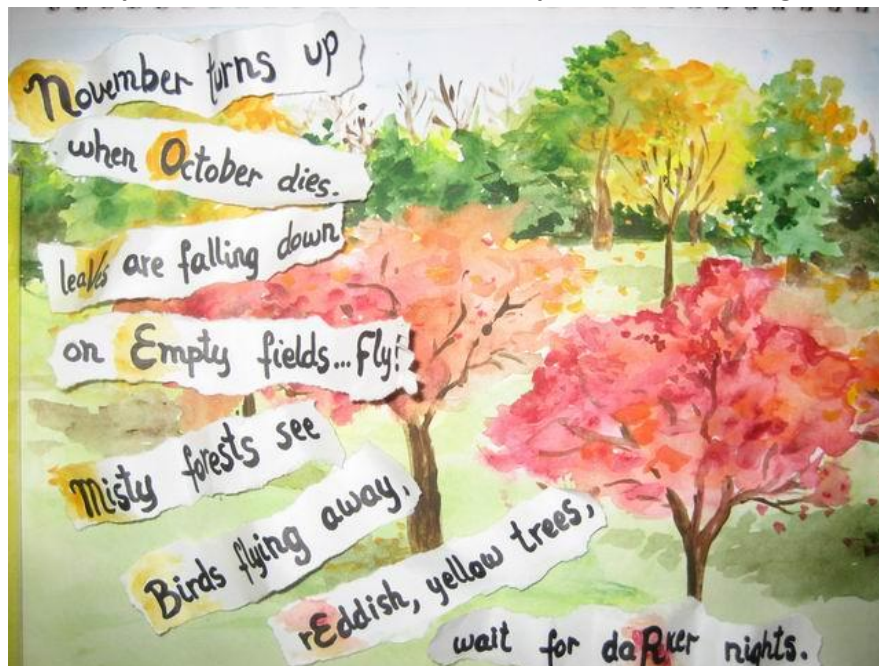 November turns up
when October dies.
leaVes are falling down
on Empty fields...Fly!
Misty forests see
Birds flying away,
rEddish, yellow trees,
wait for daRker nights.